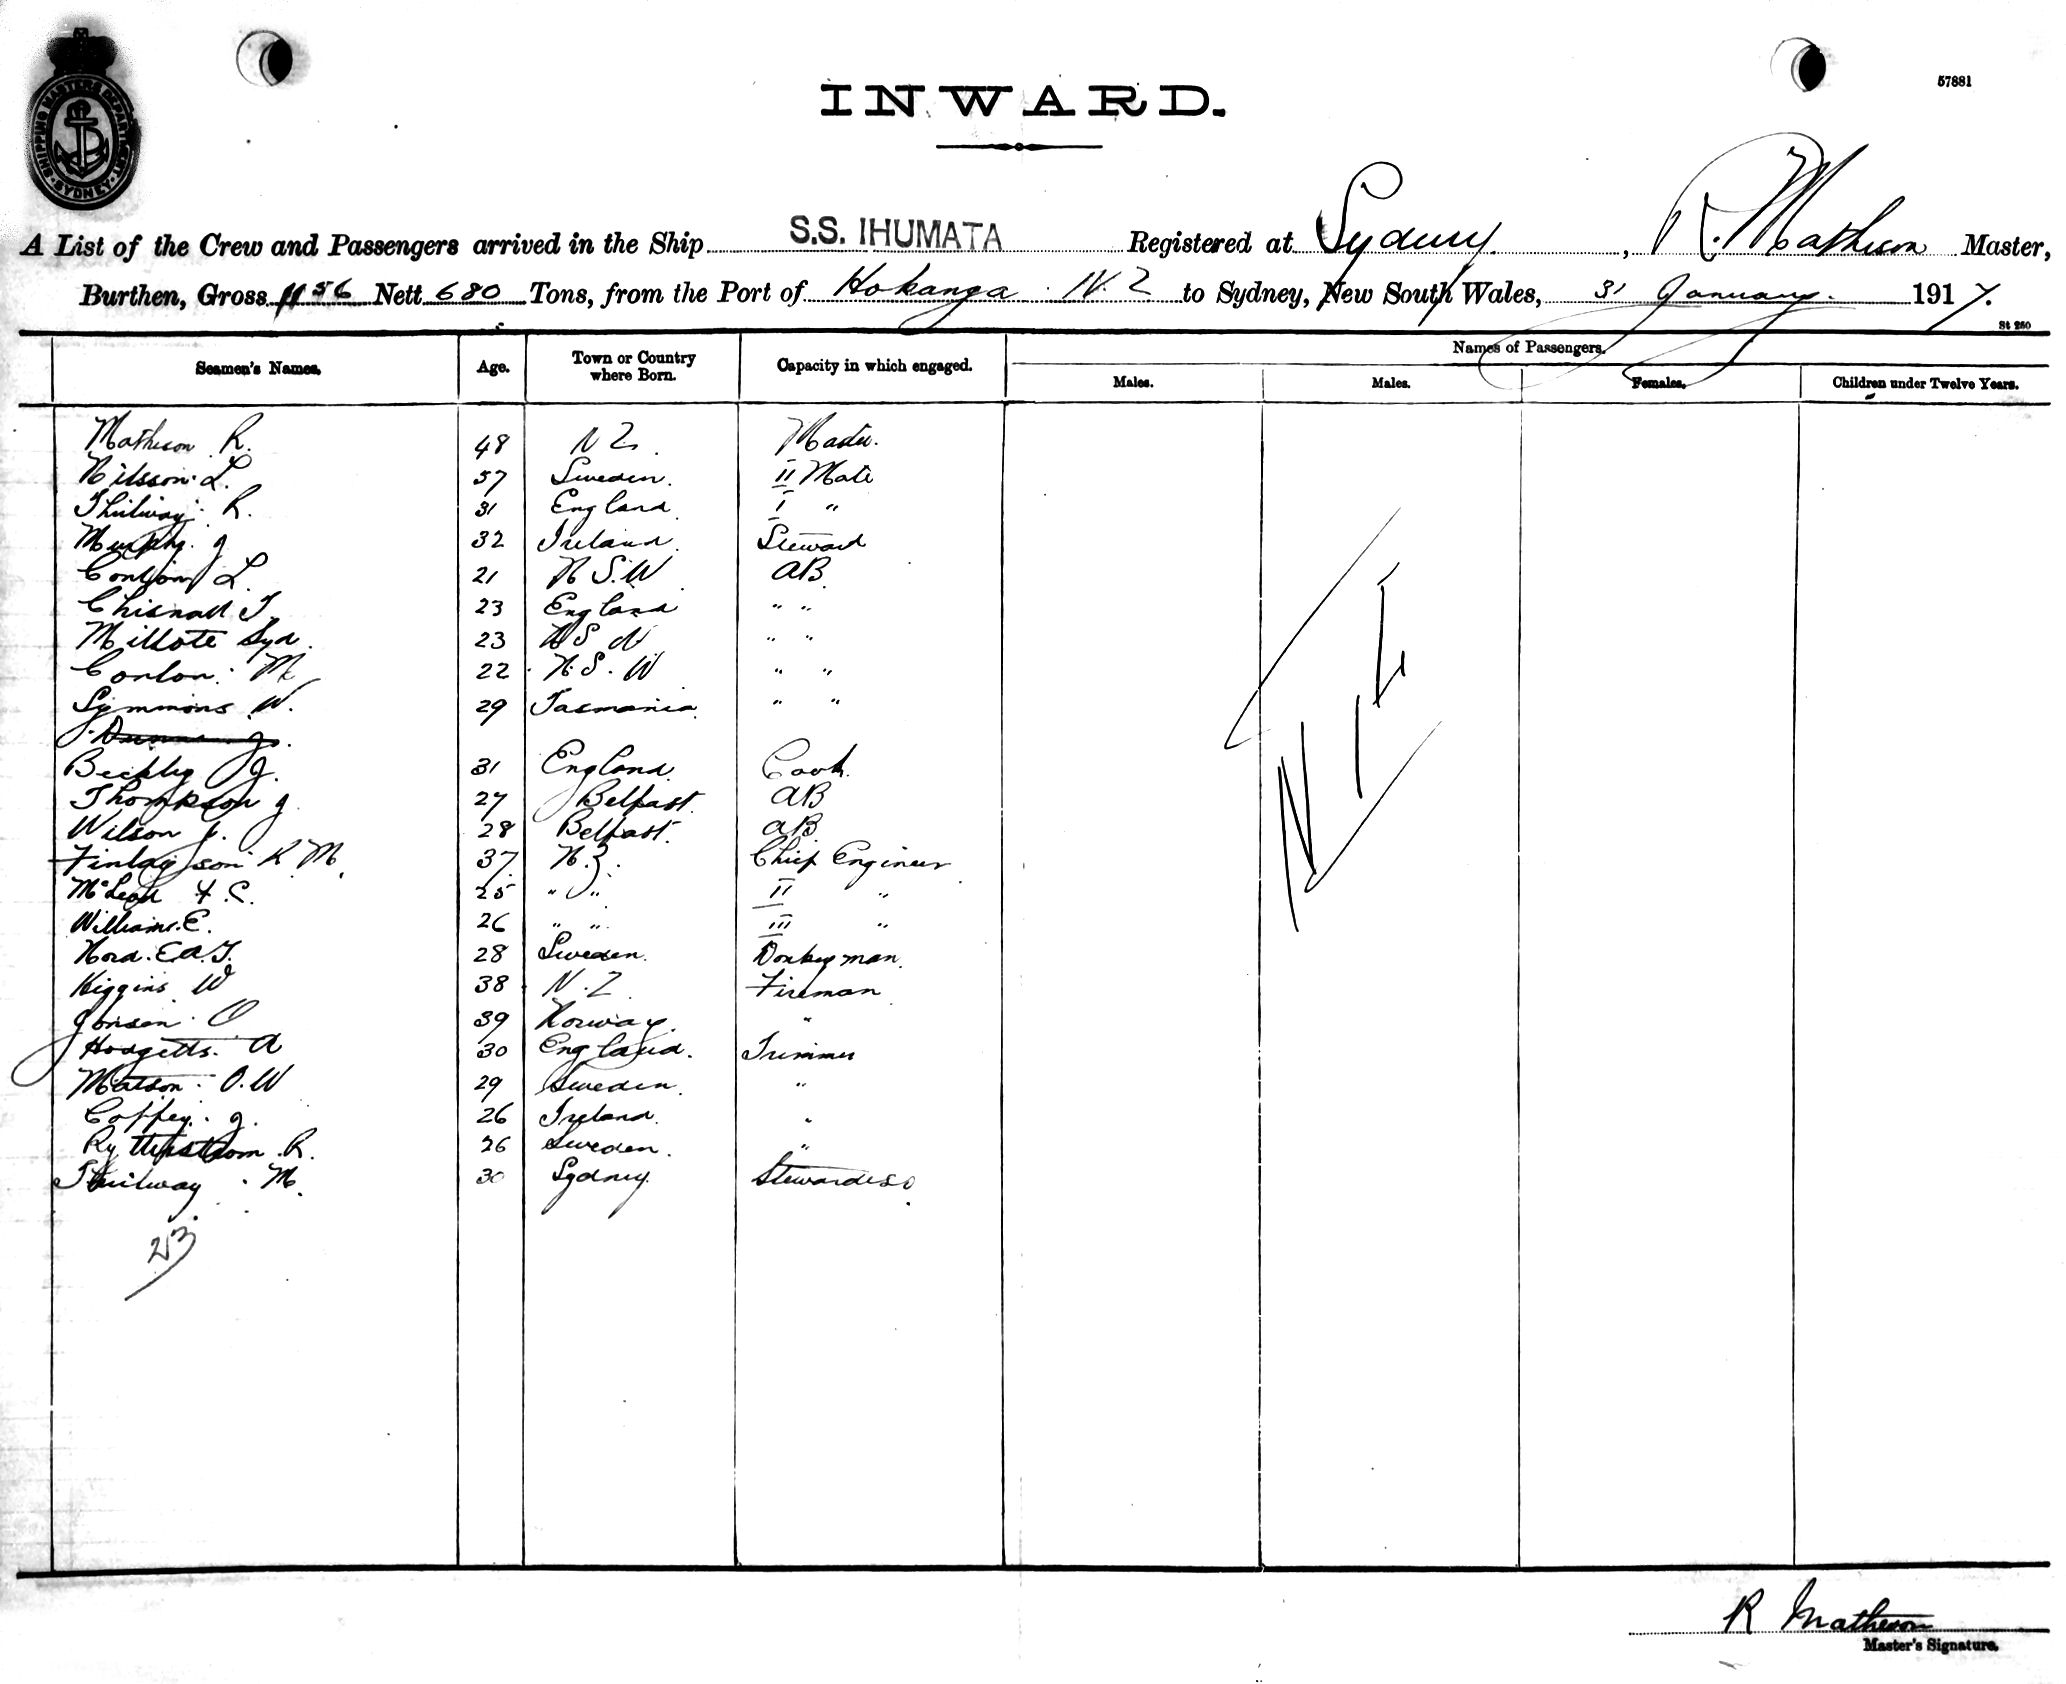 SHIPPING MASTERS DEPARTMENT · SYDNEY ·
57881
INWARD.
A List of the Crew and Passengers arrived in the Ship S.S. IHUMATA Registered at Sydney, R. Matheson Master,
Burthen, Gross 1156 Nett 680 Tons, from the Port of Hokanga N.Z to Sydney, New South Wales, 31 January. 1917.
St 250
Seamen's Names. Age. Town or Country where Born. Capacity in which engaged. Names of Passengers.
Males. Males. Females. Children under Twelve Years.
Matheson R. 48 N Z. Master.
Nilsson L. 57 Sweden. II Mate
Thilway R. 31 England. I "
Murphy. J 32 Ireland. Steward
Conlon L. 21 N S. W AB.
Chisnall T. 23 England " "
Millote Syd. 23 N S W " "
Conlon. M 22 N. S. W " "
Symmons W. 29 Tasmania. " "
J.
Beckley J. 31 England. Cook.
Thompson J 27 Belfast. AB
Wilson J. 28 Belfast. AB
Finlayson K M. 37 N Z. Chief Engineer
McLeod F. C. 25 " " II "
Williams. E. 26 " " III "
Nord. E.A.T. 28 Sweden. Donkeyman.
Higgins W 38 N. Z. Fireman
Jonsen. O 39 Norway. "
Hodgetts. A 30 England. Trimmer
Matson. O. W 29 Sweden. "
Coffey. J. 26 Ireland. "
Rytterstrom. R. 26 Sweden. "
Thilway. M. 30 Sydney. Stewardess.
23
NIL
R Matheson
Master's Signature.